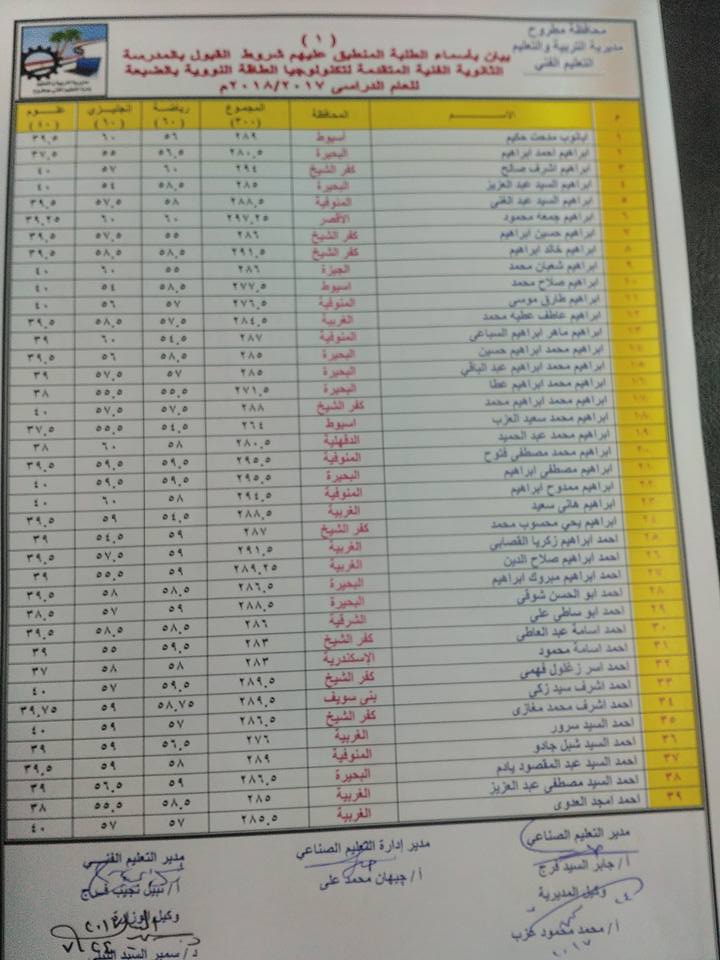 محافظة مطروح
مديرية التربية والتعليم
التعليم الفني
( ١ )
بيان بأسماء الطلبة المنطبق عليهم شروط القبول بالمدرسة
الثانوية الفنية المتقدمة لتكنولوجيا الطاقة النووية بالضبعة
للعام الدراسى ٢٠١٨/٢٠١٧م
م الاســـــم المحافظة المجموع (٣٠٠) رياضة (٦٠) انجليزي (٦٠) علوم (٤٠)
١ ابانوب مدحت حكيم أسيوط ٢٨٩ ٥٦ ٦٠ ٣٩,٥
٢ ابراهيم احمد ابراهيم البحيرة ٢٨٠,٥ ٥٦,٥ ٥٥ ٣٧,٥
٣ ابراهيم اشرف صالح كفر الشيخ ٢٩٤ ٦٠ ٥٧ ٤٠
٤ ابراهيم السيد عبد العزيز البحيرة ٢٨٥ ٥٨,٥ ٥٤ ٤٠
٥ ابراهيم السيد عبد الغنى المنوفية ٢٨٨,٥ ٥٨ ٥٧,٥ ٣٩,٥
٦ ابراهيم جمعه محمود الأقصر ٢٩٧,٢٥ ٦٠ ٦٠ ٣٩,٢٥
٧ ابراهيم حسين ابراهيم كفر الشيخ ٢٨٦ ٥٥ ٥٧,٥ ٣٩,٥
٨ ابراهيم خالد ابراهيم كفر الشيخ ٢٩١,٥ ٥٨,٥ ٥٨,٥ ٣٩,٥
٩ ابراهيم شعبان محمد الجيزة ٢٨٦ ٥٥ ٦٠ ٤٠
١٠ ابراهيم صلاح محمد اسيوط ٢٧٧,٥ ٥٨,٥ ٥٤ ٤٠
١١ ابراهيم طارق موسى المنوفية ٢٧٦,٥ ٥٧ ٥٦ ٤٠
١٢ ابراهيم عاطف عطيه محمد الغربية ٢٨٤,٥ ٥٧,٥ ٥٨,٥ ٣٩,٥
١٣ ابراهيم ماهر ابراهيم السباعى المنوفية ٢٨٧ ٥٤,٥ ٦٠ ٣٩
١٤ ابراهيم محمد ابراهيم حسين البحيرة ٢٨٥ ٥٨,٥ ٥٦ ٣٩,٥
١٥ ابراهيم محمد ابراهيم عبد الباقي البحيرة ٢٨٥ ٥٧ ٥٧,٥ ٣٩
١٦ ابراهيم محمد ابراهيم عطا البحيرة ٢٧١,٥ ٥٥,٥ ٥٥,٥ ٣٨
١٧ ابراهيم محمد ابراهيم محمد كفر الشيخ ٢٨٨ ٥٧,٥ ٥٧,٥ ٤٠
١٨ ابراهيم محمد سعيد العزب اسيوط ٢٦٤ ٥٤,٥ ٥٥,٥ ٣٧,٥
١٩ ابراهيم محمد عبد الحميد الدقهلية ٢٨٠,٥ ٥٨ ٦٠ ٣٨
٢٠ ابراهيم محمد مصطفى فتوح المنوفية ٢٩٥,٥ ٥٩,٥ ٥٩,٥ ٣٩,٥
٢١ ابراهيم مصطفى ابراهيم البحيرة ٢٩٥,٥ ٥٩,٥ ٥٩,٥ ٤٠
٢٢ ابراهيم ممدوح ابراهيم المنوفية ٢٩٤,٥ ٥٨ ٦٠ ٤٠
٢٣ ابراهيم هاني سعيد الغربية ٢٨٨,٥ ٥٤,٥ ٥٩ ٣٩,٥
٢٤ ابراهيم يحي محسوب محمد كفر الشيخ ٢٨٧ ٥٩ ٥٤,٥ ٣٩
٢٥ احمد ابراهيم زكريا القصابى الغربية ٢٩١,٥ ٥٩ ٥٧,٥ ٣٩,٥
٢٦ احمد ابراهيم صلاح الدين الغربية ٢٨٩,٢٥ ٥٩ ٥٥,٥ ٣٩
٢٧ احمد ابراهيم مبروك ابراهيم البحيرة ٢٨٦,٥ ٥٨,٥ ٥٨ ٣٩,٥
٢٨ احمد ابو الحسن شوقى البحيرة ٢٨٨,٥ ٥٩ ٥٧ ٣٨,٥
٢٩ احمد ابو ساطى على الشرقية ٢٨٦ ٥٨,٥ ٥٨,٥ ٣٩,٥
٣٠ احمد اسامة عبد العاطى كفر الشيخ ٢٨٣ ٥٩,٥ ٥٥ ٣٩
٣١ احمد اسامة محمود الإسكندرية ٢٨٣ ٥٨ ٥٨ ٣٧
٣٢ احمد اسر زغلول فهمى كفر الشيخ ٢٨٩,٥ ٥٩,٥ ٥٧ ٤٠
٣٣ احمد اشرف سيد زكى بنى سويف ٢٨٩,٥ ٥٨,٧٥ ٥٩ ٣٩,٧٥
٣٤ احمد اشرف محمد مغازى كفر الشيخ ٢٨٦,٥ ٥٧ ٥٩ ٤٠
٣٥ احمد السيد سرور الغربية ٢٧٦ ٥٦,٥ ٥٩ ٣٩
٣٦ احمد السيد شبل جادو المنوفية ٢٨٩ ٥٨ ٥٩ ٣٩,٥
٣٧ احمد السيد عبد المقصود يادم البحيرة ٢٨٦,٥ ٥٩ ٥٦,٥ ٣٩
٣٨ احمد السيد مصطفى عبد العزيز الغربية ٢٨٥ ٥٨,٥ ٥٥,٥ ٣٨
٣٩ احمد امجد العدوى الغربية ٢٨٥,٥ ٥٧ ٥٧ ٤٠
مدير التعليم الصناعي مدير إدارة التعليم الصناعي مدير التعليم الفني
أ/ جابر السيد فرج أ/ جيهان محمد على أ/ نبيل نجيب فرج
وكيل المديرية وكيل الوزارة
أ/ محمد محمود عزب د/ سمير السيد